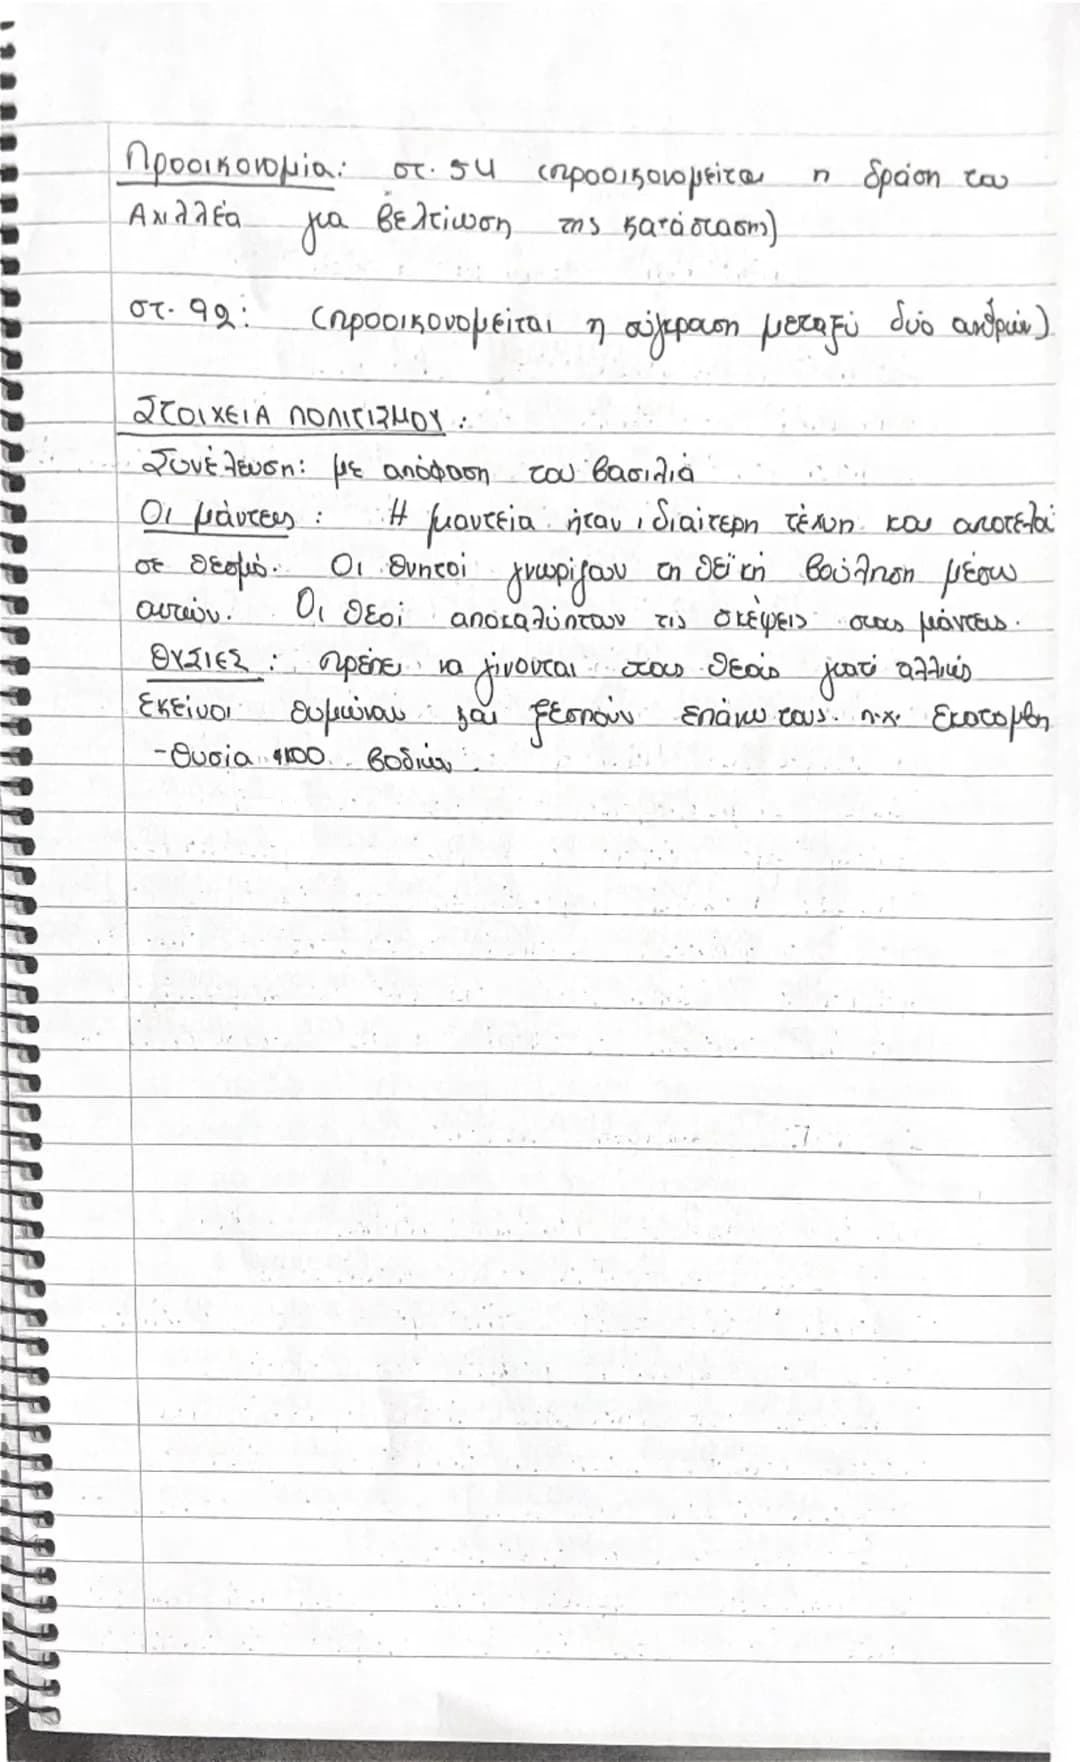 Προοικονομία: στ. 54 (προοικονομείται η δράση του
Αχιλλέα για βελτίωση της κατάσταση)
στ. 92: (προοικονομείται η σύγκραση μεταξύ δύο ανδρών)
ΣΤΟΙΧΕΙΑ ΠΟΛΙΤΙΣΜΟΥ:
Συνέλευση: με απόφαση του βασιλιά
Οι μάντεις: Η μαντεία ήταν ιδιαίτερη τέχνη και αποτελεί
σε θεσμό. Οι θνητοί γνωρίζαν τη θεϊκή βούληση μέσω
αυτών. Οι θεοί αποκαλύπταν τις σκέψεις στους μάντεις.
ΘΥΣΙΕΣ: πρέπει να γίνονται στους θεούς γιατί αλλιώς
εκείνοι θυμώναν και ξεσπούν επάνω τους. π.χ. Εκατομβη
-Θυσία 100 βοδιών.